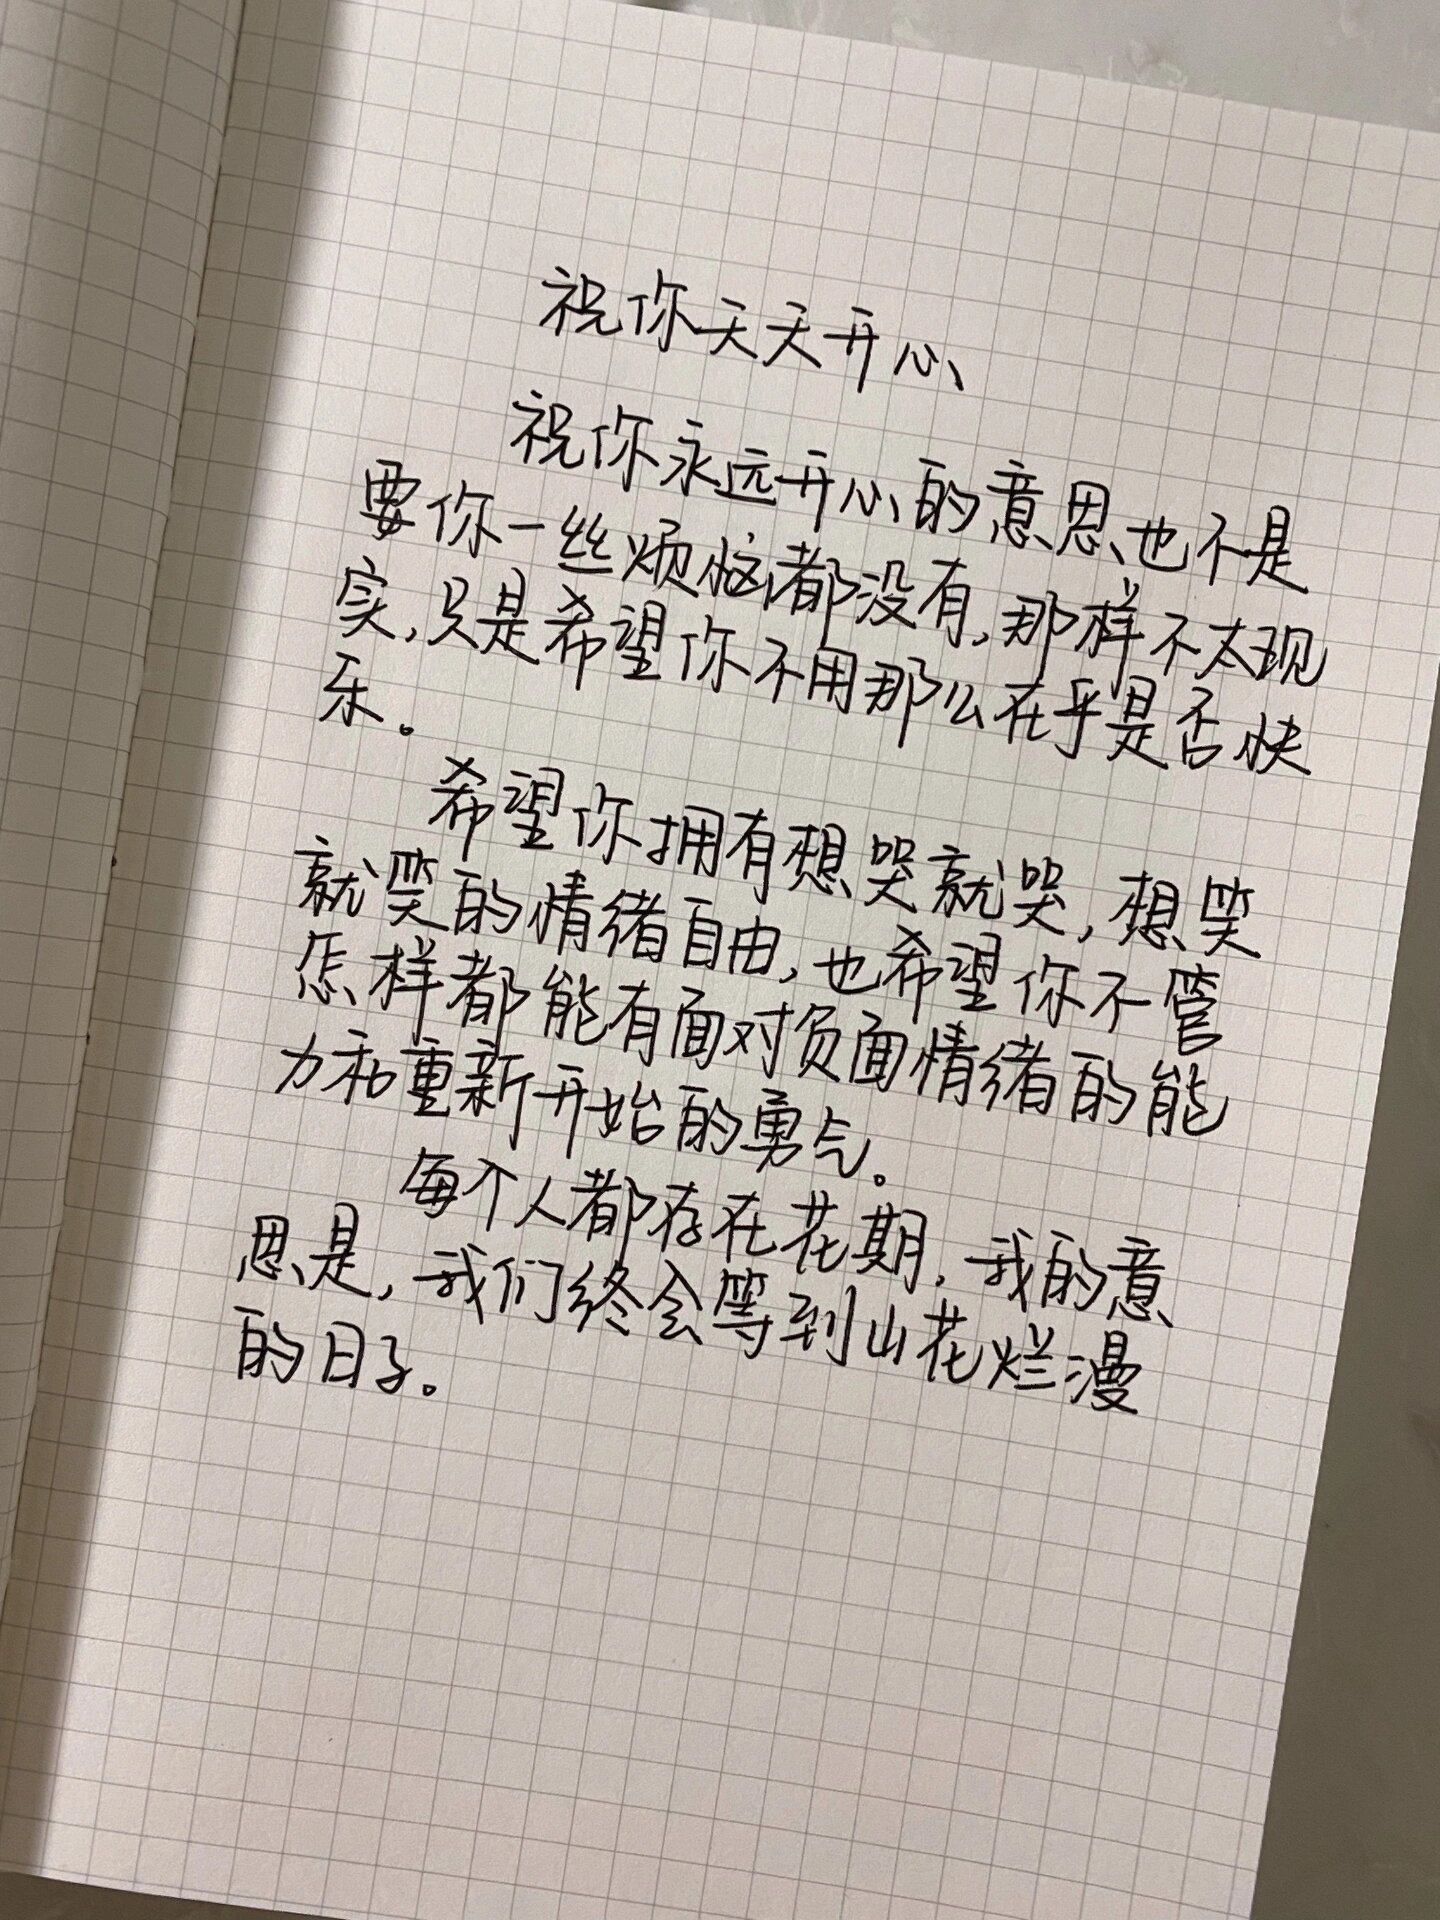 祝你天天开心
祝你永远开心的意思也不是
要你一丝烦恼都没有,那样不太现
实,只是希望你不用那么在乎是否快
乐。
希望你拥有想哭就哭,想笑
就笑的情绪自由,也希望你不管
怎样都能有面对负面情绪的能
力和重新开始的勇气。
每个人都存在花期,我的意
思是,我们终会等到山花烂漫
的日子。